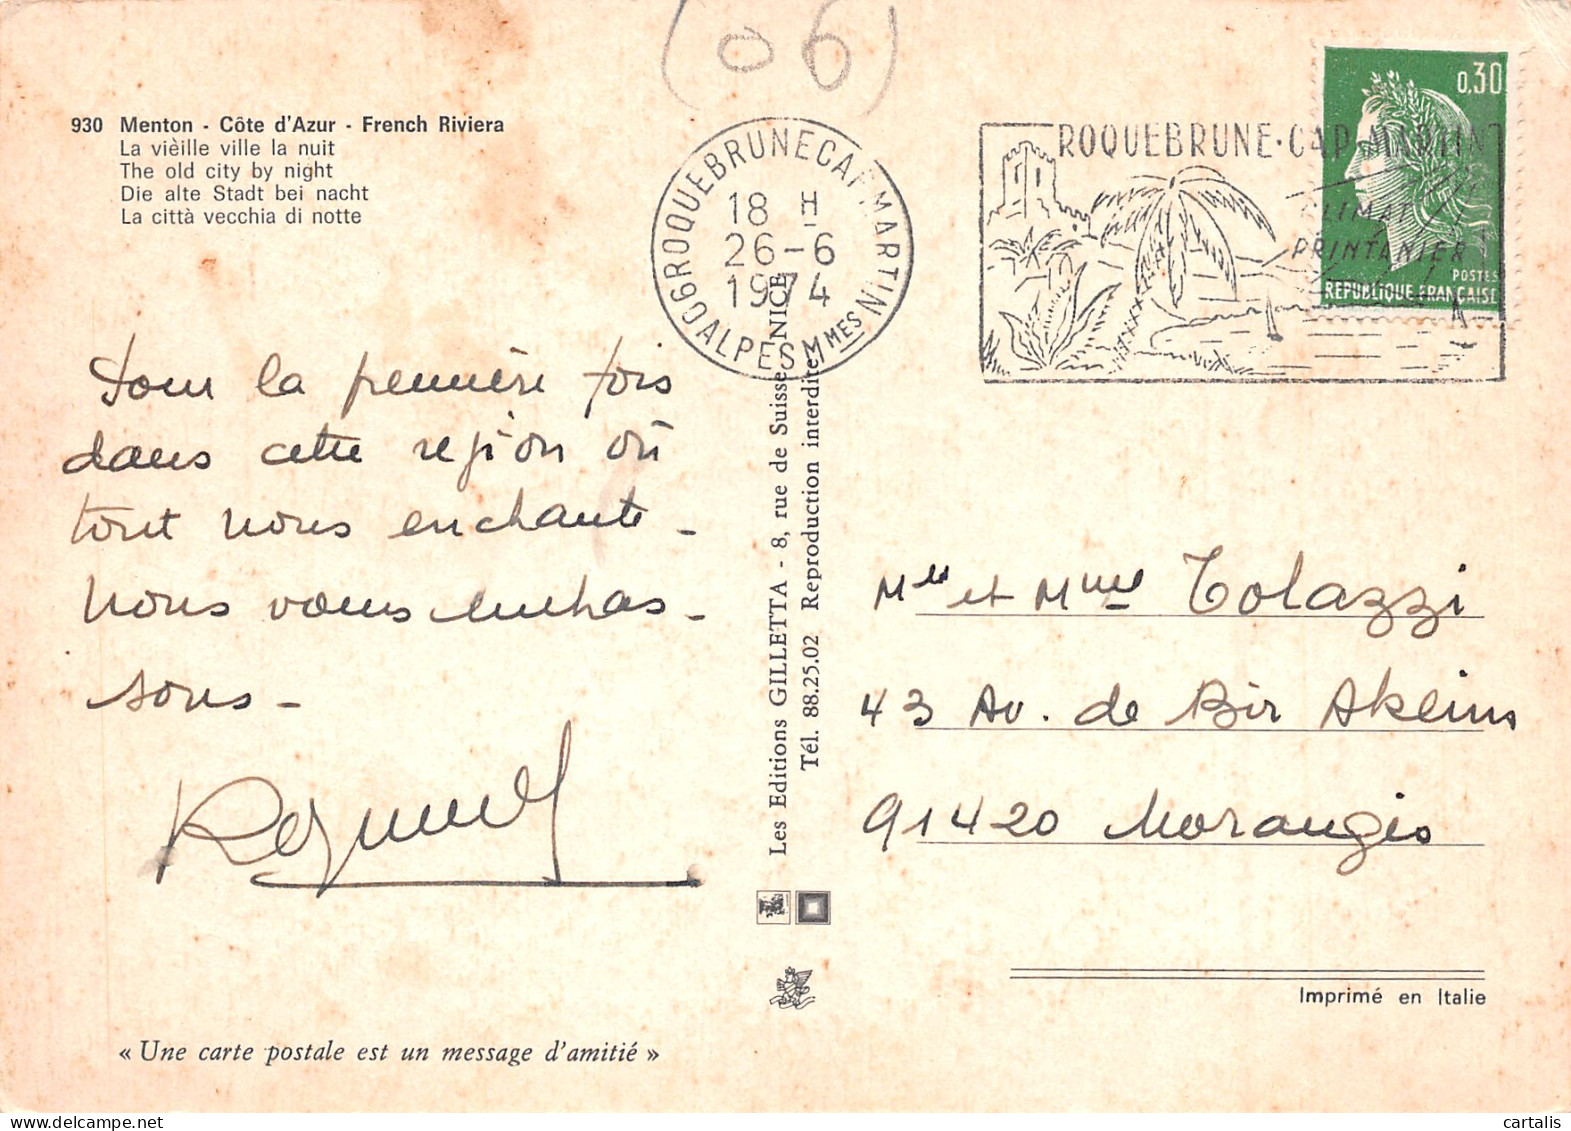 (06)
930 Menton - Côte d'Azur - French Riviera
La vièille ville la nuit
The old city by night
Die alte Stadt bei nacht
La città vecchia di notte
06 ROQUEBRUNE CAP MARTIN
18 H
26-6
1974
ALPES MMES
ROQUEBRUNE·CAP MARTIN
CLIMAT
PRINTANIER
0,30
POSTES
REPUBLIQUE FRANÇAISE
Pour la première fois
dans cette region où
tout nous enchante -
Nous vous embras -
sons -
Les Editions GILLETTA - 8, rue de Suisse, NICE
Tél. 88.25.02 Reproduction interdite
Mlle et Mme Tolazzi
43 Av. de Bir Akeins
91420 Morangis
Imprimé en Italie
« Une carte postale est un message d'amitié »
cartalis